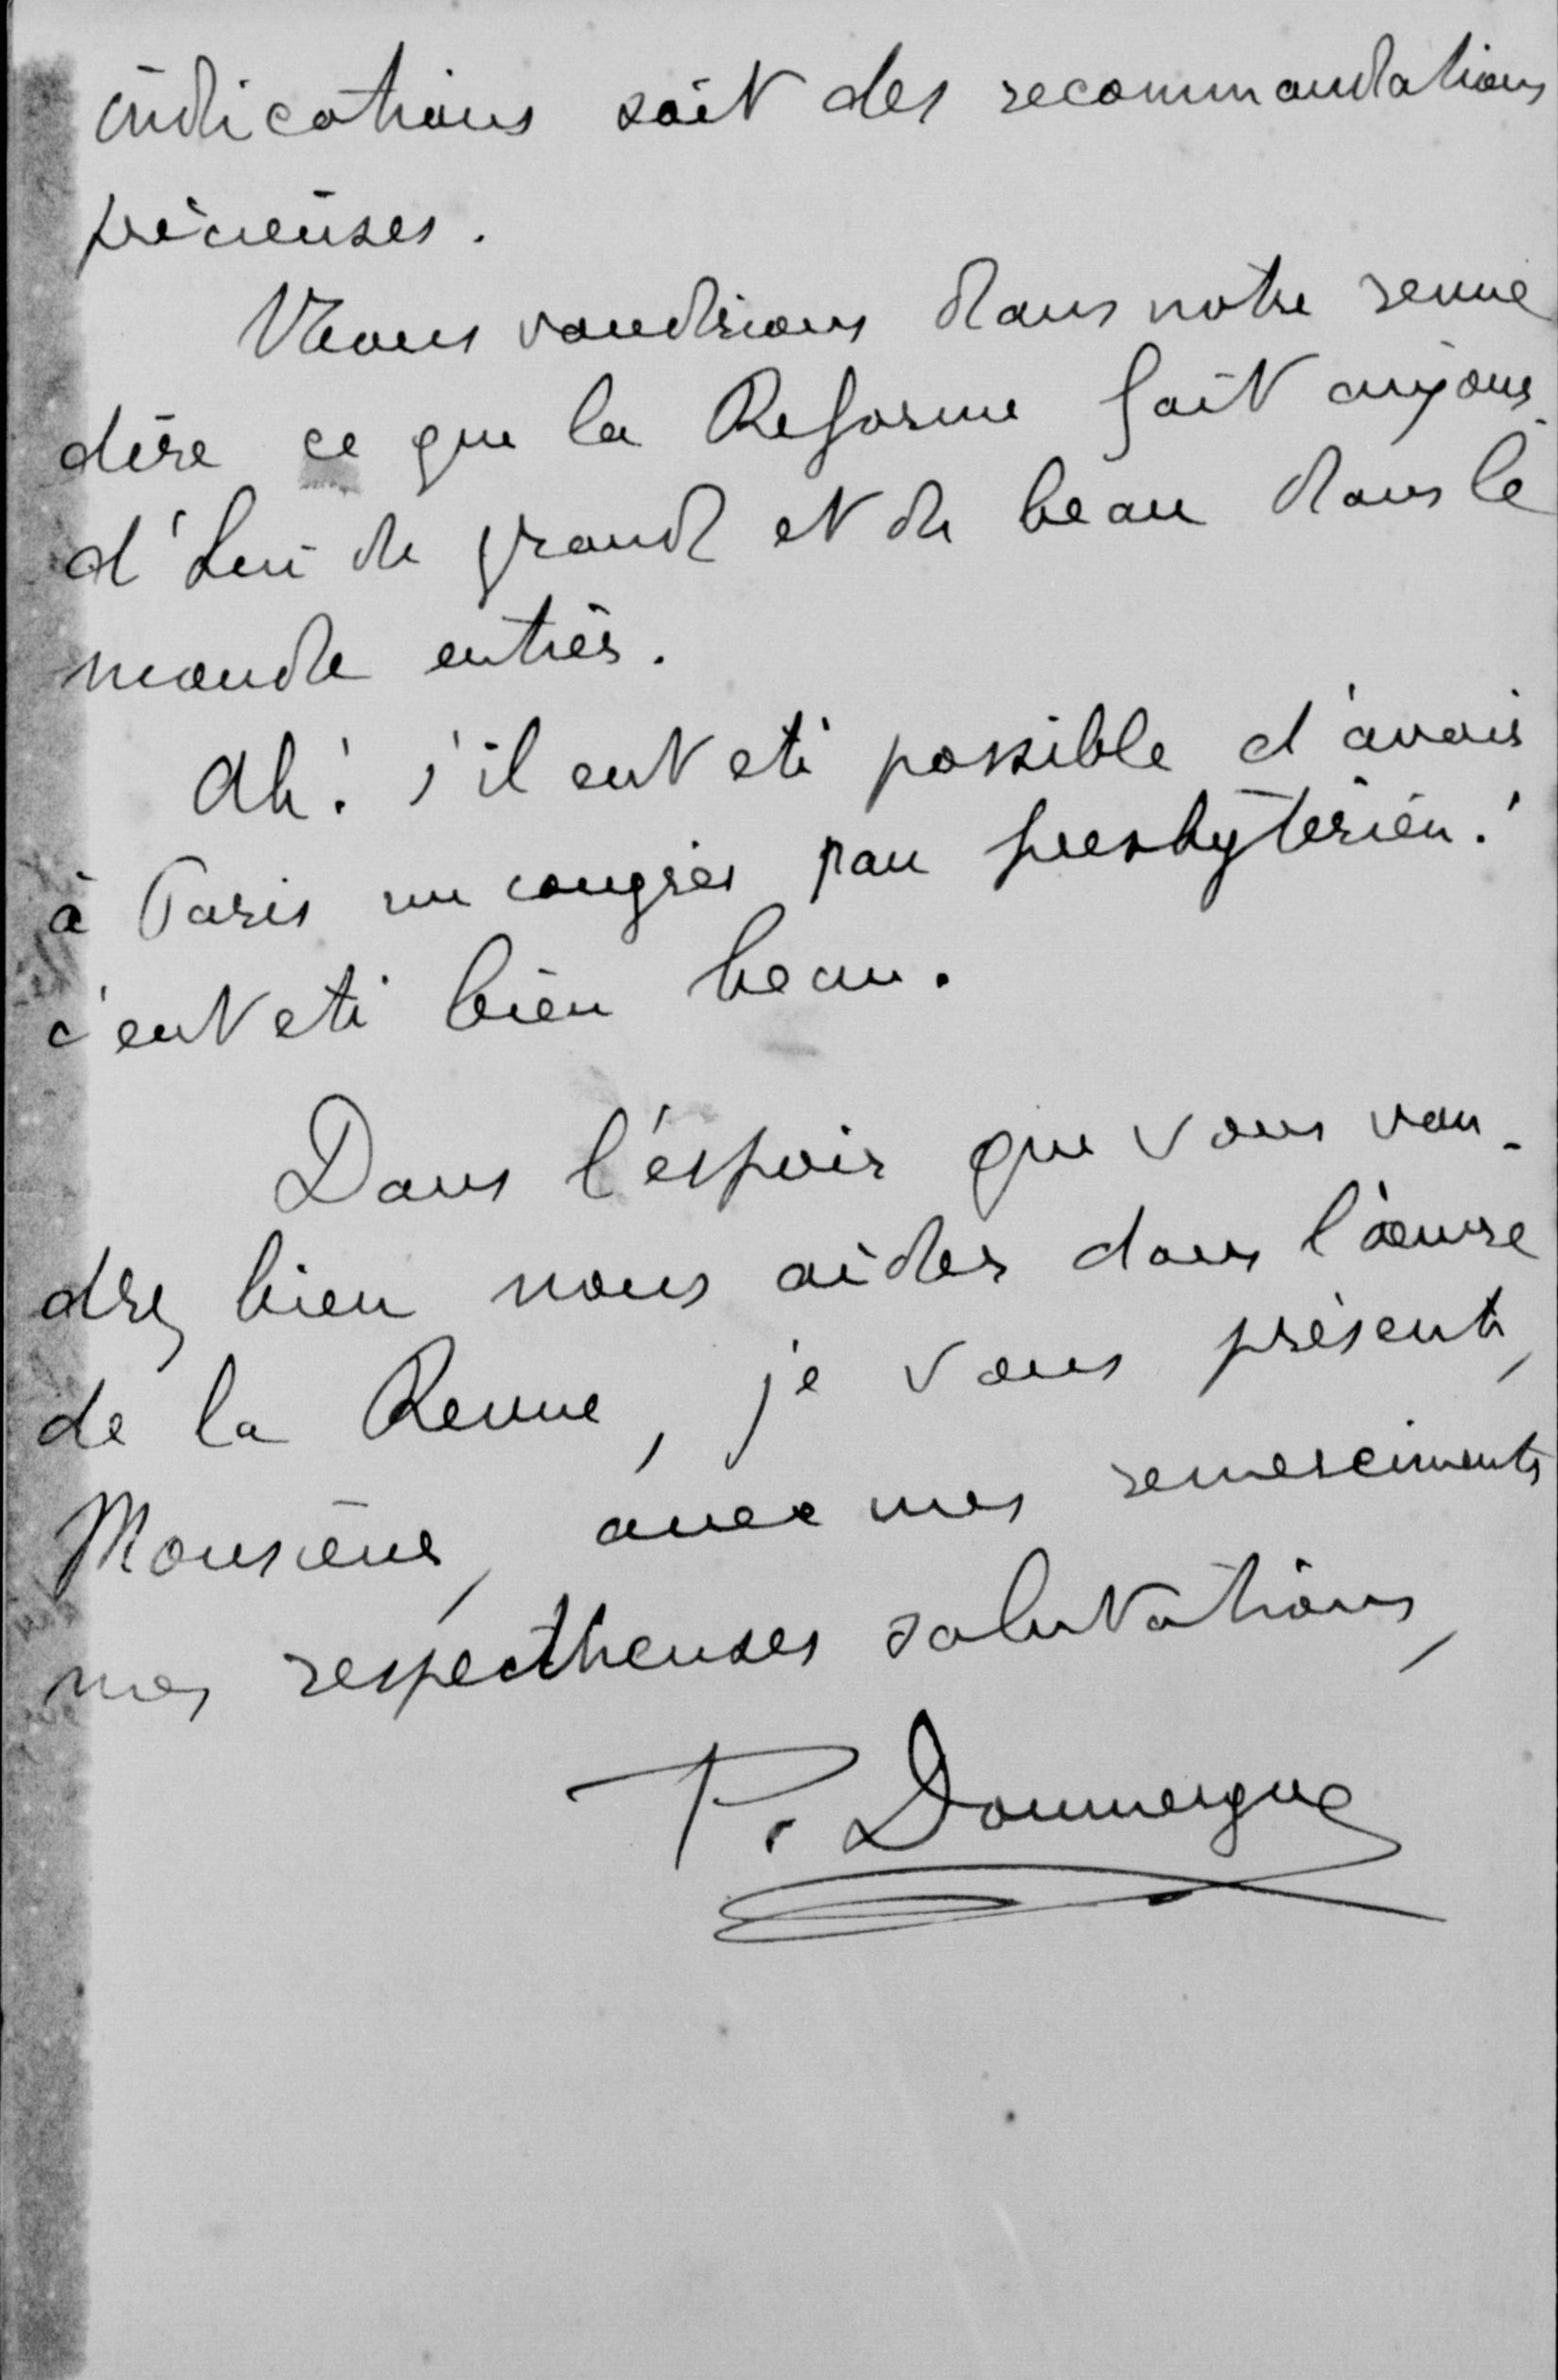 indications soit des recommandations
précieuses.
Nous voudrions dans notre revue
dire ce que la Reforme fait aujour-
d'hui de grand et de beau dans le
monde entier.
Ah! s'il eut eté possible d'avoir
à Paris un congrès pan presbytérien!
c'eut eté bien beau.
Dans l'éspoir que vous vou-
drez bien nous aider dans l'œuvre
de la Revue, je vous présente,
Monsieur, avec mes remerciments
mes respectueuses salutations,
P. Doumergue